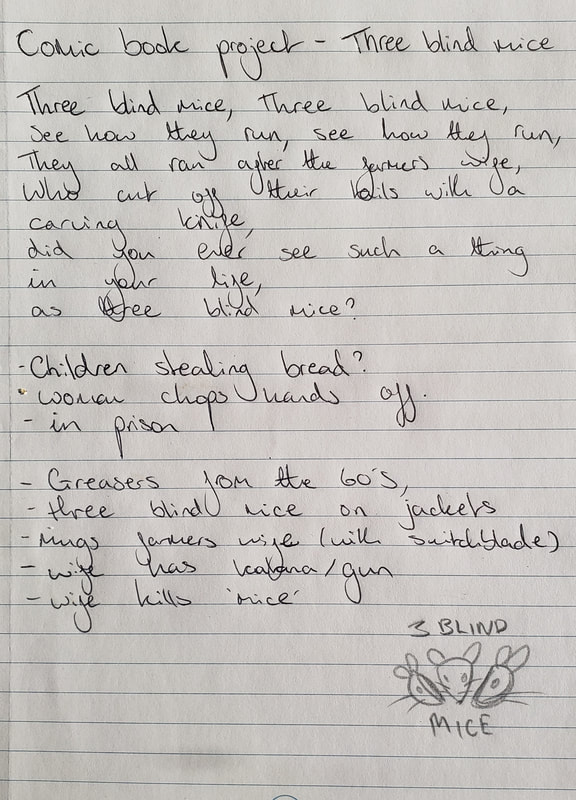 Comic book project - Three blind mice
Three blind mice, Three blind mice,
see how they run, see how they run,
They all ran after the farmers wife,
Who cut off their tails with a
carving knife,
did you ever see such a thing
in your life,
as three blind mice?
- Children stealing bread?
- woman chops hands off.
- in prison
- Greasers from the 60's,
- three blind mice on jackets
- mugs farmers wife (with switchblade)
- wife has katana/gun
- wife kills 'mice'
3 BLIND
MICE